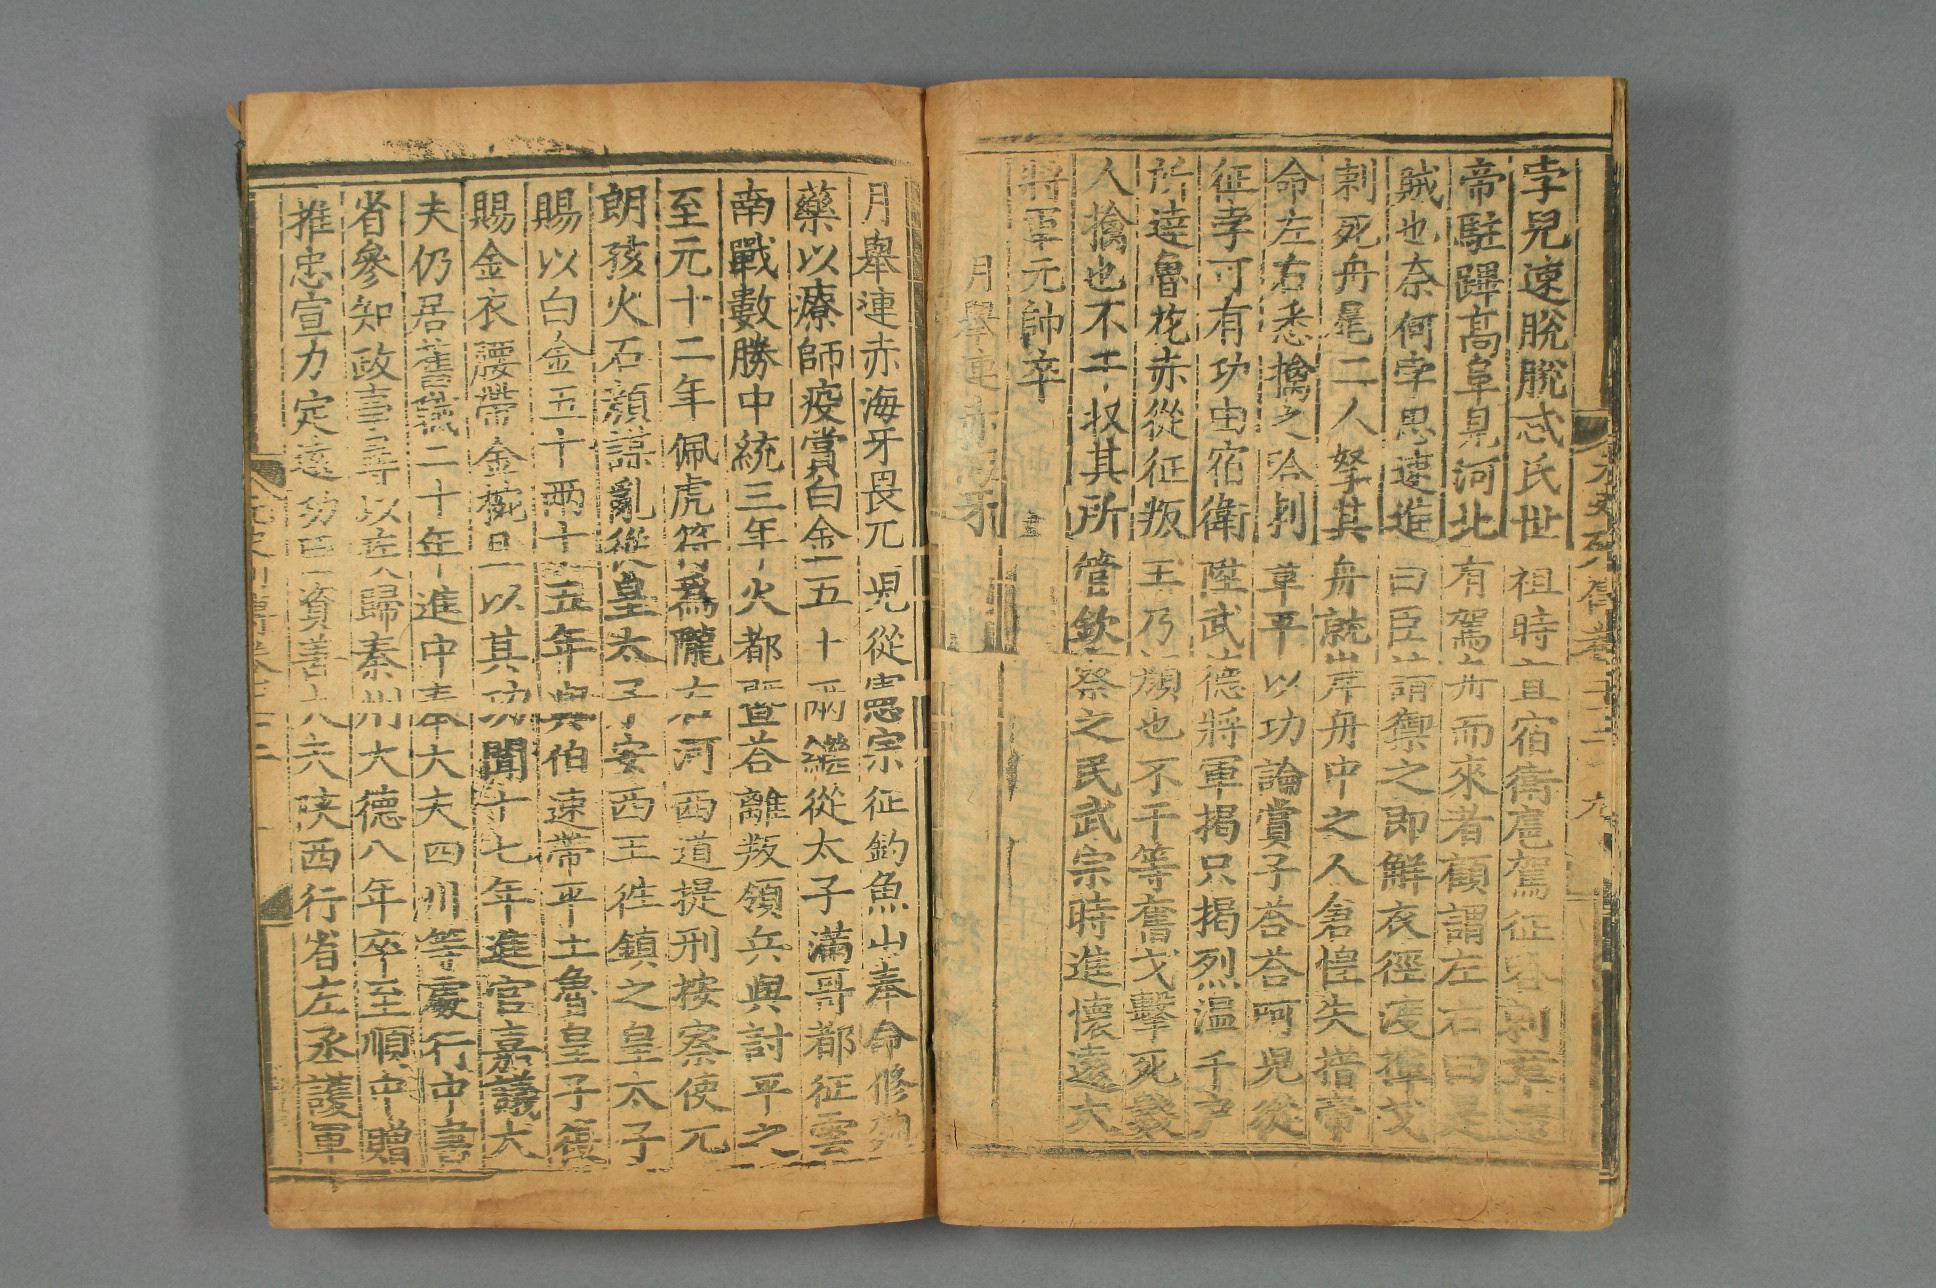 元史列傳卷二十二 九
孛兒速脫脫忒氏世祖時直宿衛扈駕征哈剌章還
帝駐蹕高阜見河北有駕舟而來者顧謂左右曰是
賊也奈何孛思速進曰臣請禦之即解衣徑渡揮戈
刺死舟尾二人拏其舟就岸舟中之人倉惶失措帝
命左右悉擒之哈剌章平以功論賞子荅荅呵兒從
征孛可有功由宿衛陞武德將軍揭只揭烈溫千戶
所達魯花赤從征叛王乃顏也不干等奮戈擊死數
人擒也不干收其所管欽察之民武宗時進懷遠大
將軍元帥卒
月舉連赤海牙
月舉連赤海牙畏兀兒從憲宗征釣魚山奉命修麴
藥以療師疫賞白金五十兩繼從太子滿哥都征雲
南戰數勝中統三年火都暨荅離叛領兵與討平之
至元十二年佩虎符爲隴右河西道提刑按察使兀
朗孩火石顏謀亂從皇太子安西王往鎮之皇太子
賜以白金五十兩十五年與伯速帶平土魯皇子復
賜金衣腰帶金椀且以其功聞十七年進官嘉議大
夫仍居舊職二十年進中奉大夫四川等處行中書
省參知政事尋以疾歸秦州大德八年卒至順中贈
推忠宣力定遠功臣資善大夫陝西行省左丞護軍
元史列傳卷二十二